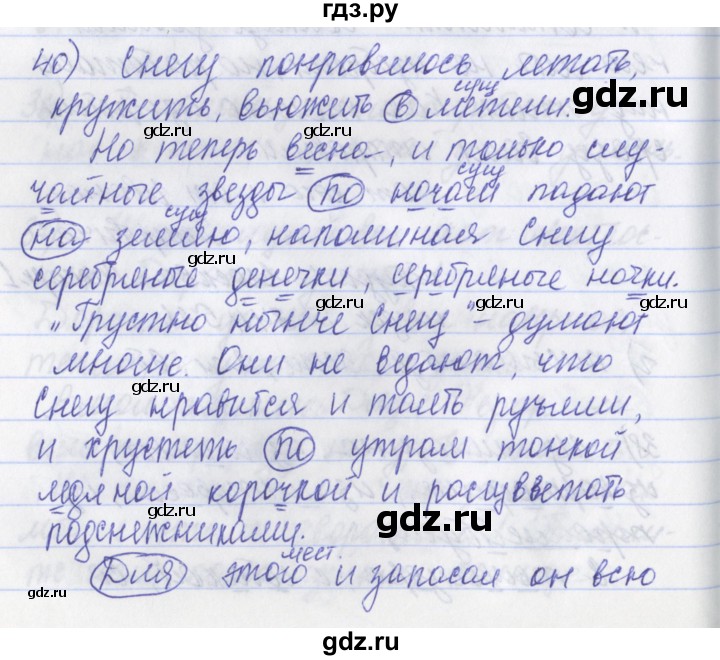 гдз.ру
40) Снегу понравилось летать,
кружить, вьюжить в метели.
сущ
gdz.ru
Но теперь весна, и только слу-
чайные звезды по ночам падают
сущ
на землю, напоминая Снегу
сущ
серебряные денечки, серебряные ночки.
„Грустно нынче Снегу" – думают
многие. Они не ведают, что
Снегу нравится и таять ручьями,
и хрустеть по утрам тонкой
ледяной корочкой и расцветать
подснежниками.
gdz.ru
мест.
Для этого и запасал он всю
gdz.ru